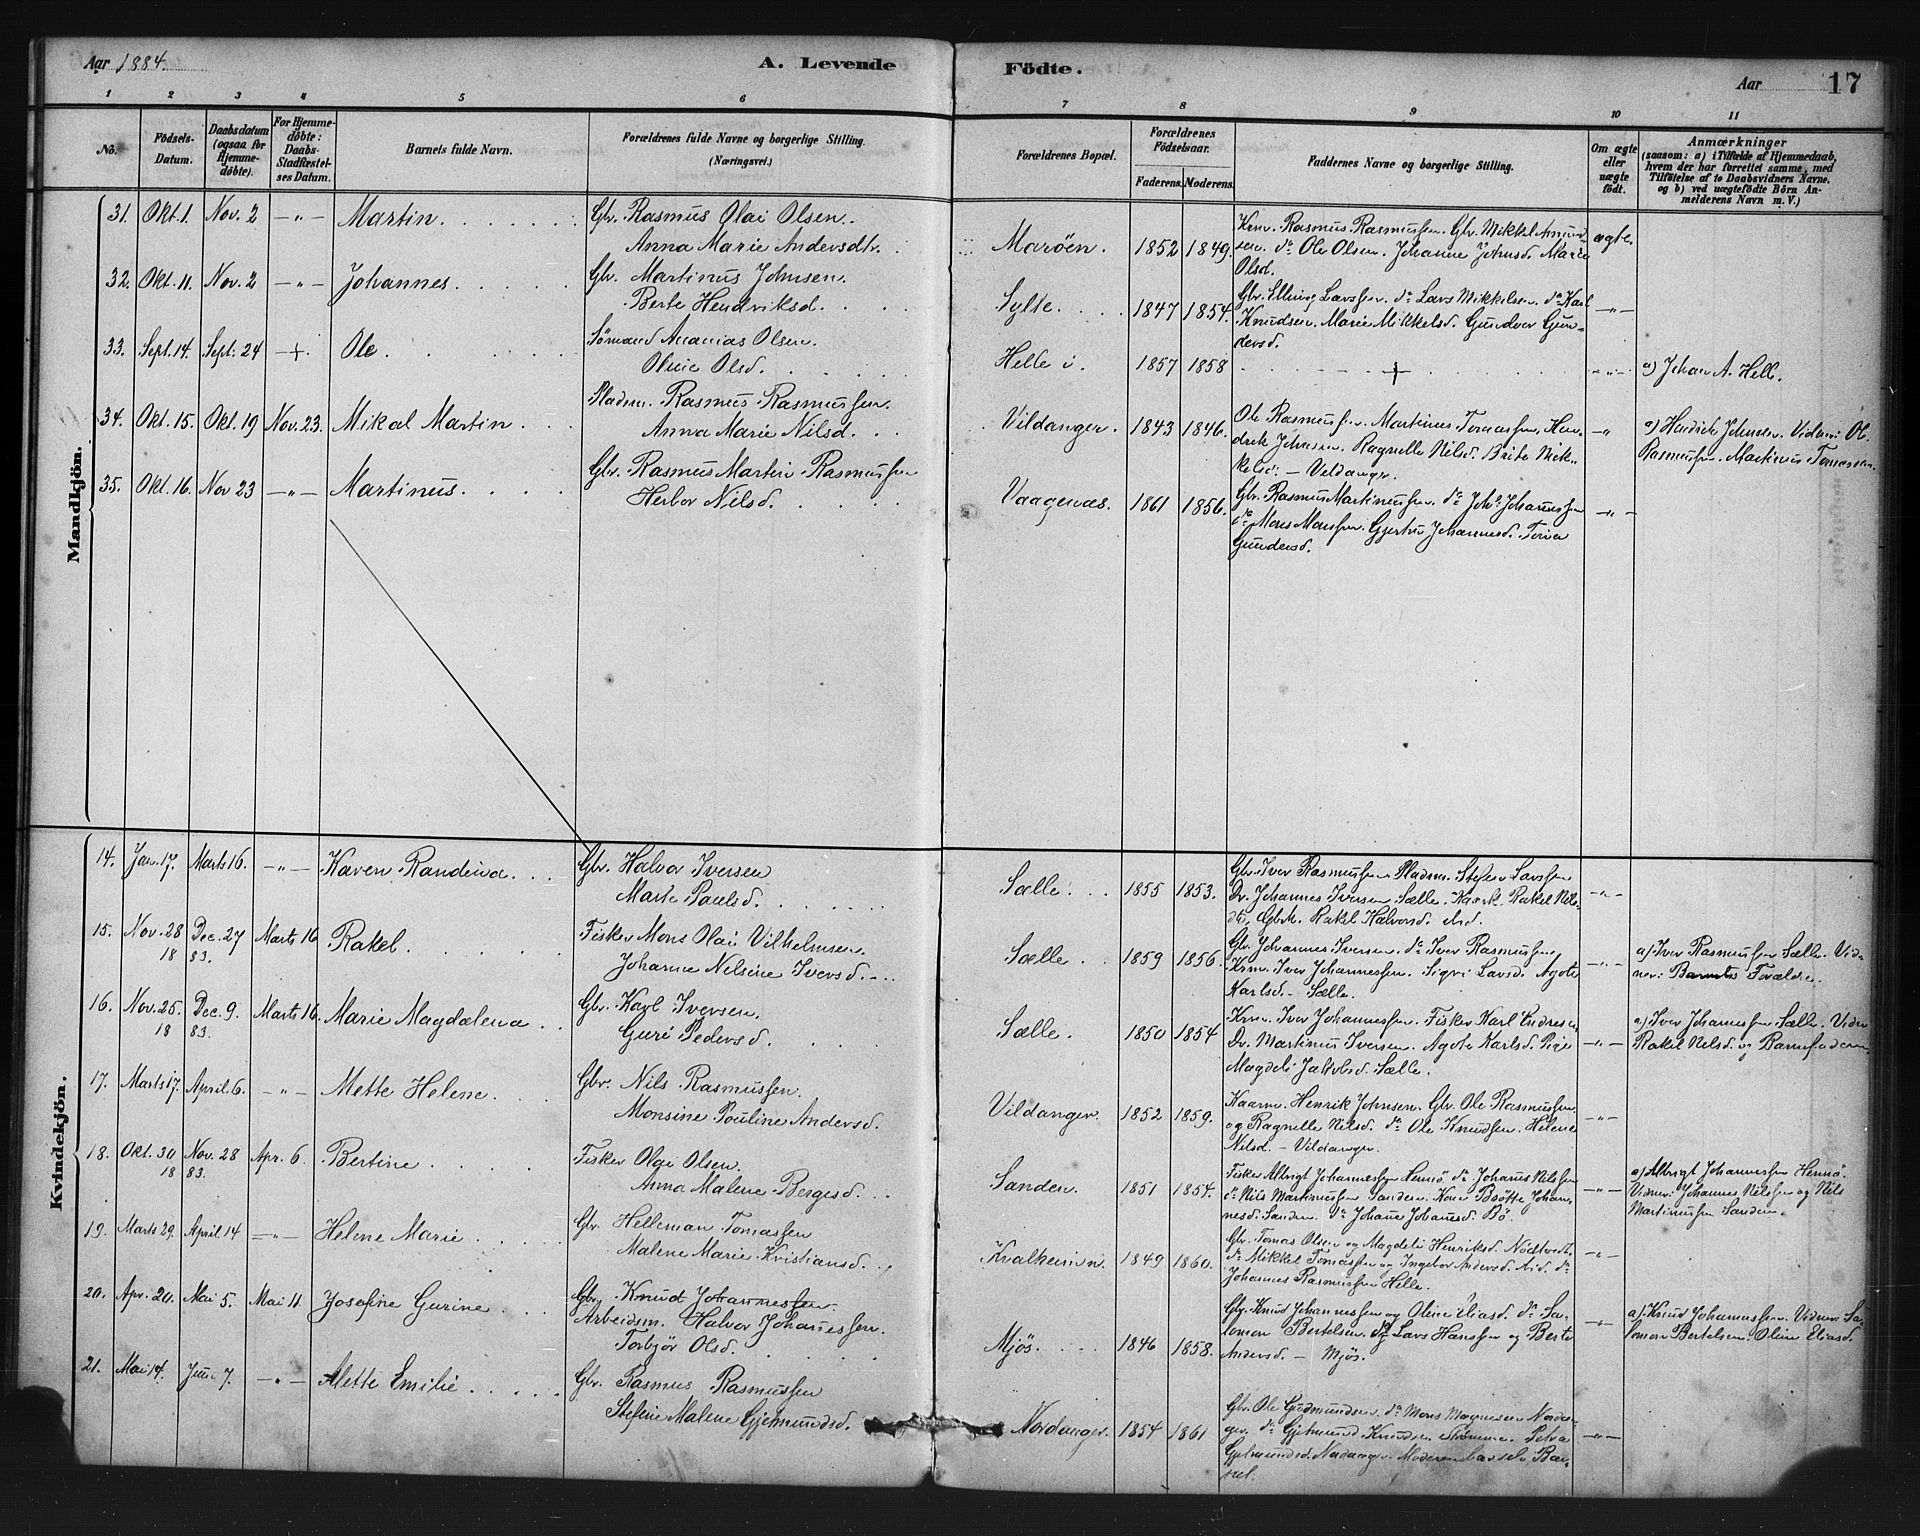 Aar 1884.
A. Levende
Födte.
Aar
17
1 2 3 4 5 6 7 8 9 10 11
No.
Födsels-
Datum.
Daabsdatum
(ogsaa for
Hjemme-
døbte).
For Hjemme-
døbte:
Daabs-
Stadfæstel-
ses Datum.
Barnets fulde Navn.
Forældrenes fulde Navne og borgerlige Stilling.
(Næringsvei.)
Forældrenes Bopæl.
Forældrenes
Födselsaar.
Faderens. Moderens.
Faddernes Navne og borgerlige Stilling.
Om ægte
eller
uægte
födt.
Anmærkninger
(saasom: a) i Tilfælde af Hjemmedaab,
hvem der har forrettet samme, med
Tilföielse af to Daabsvidners Navne,
og b) ved uægtefödte Börn An-
melderens Navn m. V.)
Mandkjön.
31. Okt. 1 Nov. 2 -"- Martin. Gbr. Rasmus Olai Olsen.
Anna Marie Andersdtr.
Marøen. 1852 1849.
Krm. Rasmus Rasmussen. Gbr. Mikkel Amund-
sen. do Ole Olsen. Johanne Johnsd. Marie
Olsd.
ægte.
32. Okt. 11. Nov. 2 -"- Johannes. Gbr. Martinus Johnsen.
Berte Hendriksd.
Sylte. 1847 1854.
Gbr. Elling Larssen. do Lars Mikkelsen. do Karl
Knudsen. Marie Mikkelsd. Gundver Gun-
dersd.
-"-
33. Sept. 14. Sept. 24 -+- Ole. Sømand Ananias Olsen.
Oline Olsd.
Helle i. 1857 1858 + -"- a) Johan A. Hell.
34. Okt. 15. Okt. 19 Nov. 23. Mikal Martin Pladsm. Rasmus Rasmussen.
Anna Marie Nilsd.
Vildanger. 1843 1846.
Ole Rasmussen. Martinus Tomassen. Hen-
drik Johnsen. Ragnelle Nilsd. Brite Mik-
kelsd. - Vildanger.
-"-
a) Hendrik Johnsen. Vidner: Ol.
Rasmussen. Martinus Tomassen.
35. Okt. 16. Nov 23 -"- Martinus. Gbr. Rasmus Martin Rasmussen
Herbor Nilsd.
Vaagenæs. 1861 1856.
Gbr. Rasmus Martinussen. do Johs. Johannessen
do Mons Monssen. Gjertru Johannesd.
Gundersd.
-"-
Kvindekjön.
14. Jan. 17. Marts 16. -"- Karen Randina. Gbr. Halvor Iversen
Marte Paulsd.
Sælle. 1855 1853.
Gbr. Iver Rasmussen. Pladsm. Stefen Larssen
Dr. Johannes Iversen Sælle. Rakel Nils-
Rakel Halvorsd.
-"-
15. Nov. 28 Dec. 27 Marts 16 Rakel. Fisker Mons Olai Vilhelmsen.
18 83. Johanne Nelsine Iversd.
Sælle. 1859 1856.
Gbr. Johannes Iversen. do Iver Rasmussen.
Krm. Iver Johannessen. Sigri Larsd. Agote
Karlsd. - Sælle.
-"-
a) Iver Rasmussen Sælle. Vid-
ner: Barnets Forældre.
16. Nov. 25. Dec. 9. Marts 16. Marie Magdalena Gbr. Karl Iversen.
18 83. Guri Pedersd.
Sælle. 1850 1854
Krm. Iver Johannessen. Fisker Karl Endresen
Dr. Martinus Iversen. Agote Karlsd. Pige
Magdeli Jakobsd. Sælle.
-"-
a) Iver Johannessen Sælle. Vidn.
Rakel Nilsd. og Barnefaderen.
17. Marts 17. April 6. -"- Mette Helene. Gbr. Nils Rasmussen.
Monsine Pouline Andersd.
Vildanger. 1852 1859.
Kaarm. Henrik Johnsen. Gbr. Ole Rasmussen
og Ragnelle Nilsd. do Ole Knudsen. Helene
Nilsd. - Vildanger.
-"-
18. Okt. 30 Nov. 28 Apr. 6. Bertine. Fisker Olai Olsen.
18 83. Anna Malene Bergesd.
Sanden. 1851 1854.
Fisker Albrigt Johannessen Hennø. do Johannes Nilssen
do Nils Martinussen Sanden. Kone Brøtte Johan-
nesd. Sanden. do Johane Johanesd. Bø.
-"-
a) Albrigt Johannessen Hennö.
Vidner: Johannes Nilssen og Nils
Martinussen Sanden.
19. Marts 29. April 14 -"- Helene Marie. Gbr. Helleman Tomassen
Malene Marie Kristiansd.
Kvalheimen. 1849 1860.
Gbr. Tomas Olsen og Magdeli Henriksd. Nödtvedt.
do Mikkel Tomassen og Ingebor Andersd. Aid. do
Johannes Rasmussen Helle.
-"-
20. Apr. 20. Mai 5. Mai 11. Josefine Gurine Gbr. Knud Johannessen.
Arbeidsm. Halvor Johannessen.
Torbjør Olsd.
Mjös. 1846 1858.
Gbr. Knud Johannessen og Oline Eliasd. do Sa-
lomon Bertelsen. do Lars Hanssen og Berte
Andersd. - Mjös.
-"-
a) Knud Johannessen. Vidner: Sa-
lomon Bertelsen. Oline Eliasd.
21. Mai 14. Juni 7. -"- Alette Emilie. Gbr. Rasmus Rasmussen
Stefine Malene Gjelmundsd.
Nordanger. 1854 1861
Gbr. Ole Gudmundsen. do Mons Magnesen Nordan-
ger. do Gjelmund Knudsen Strømme.
Gjelmundsd. Nordanger.
-"-